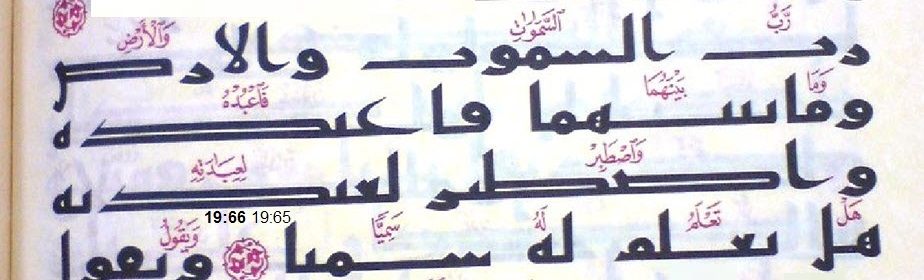 رَّبُّ السَّمَٰوَٰتِ وَالْأَرْضِ
رب السموت والارض
وَمَا بَيْنَهُمَا فَاعْبُدْهُ
وما بينهما فاعبده
وَاصْطَبِرْ لِعِبَادَتِهِ
واصطبر لعبدته
هَلْ تَعْلَمُ لَهُ سَمِيًّا وَيَقُولُ
19:66 19:65
هل تعلم له سميا ويقول